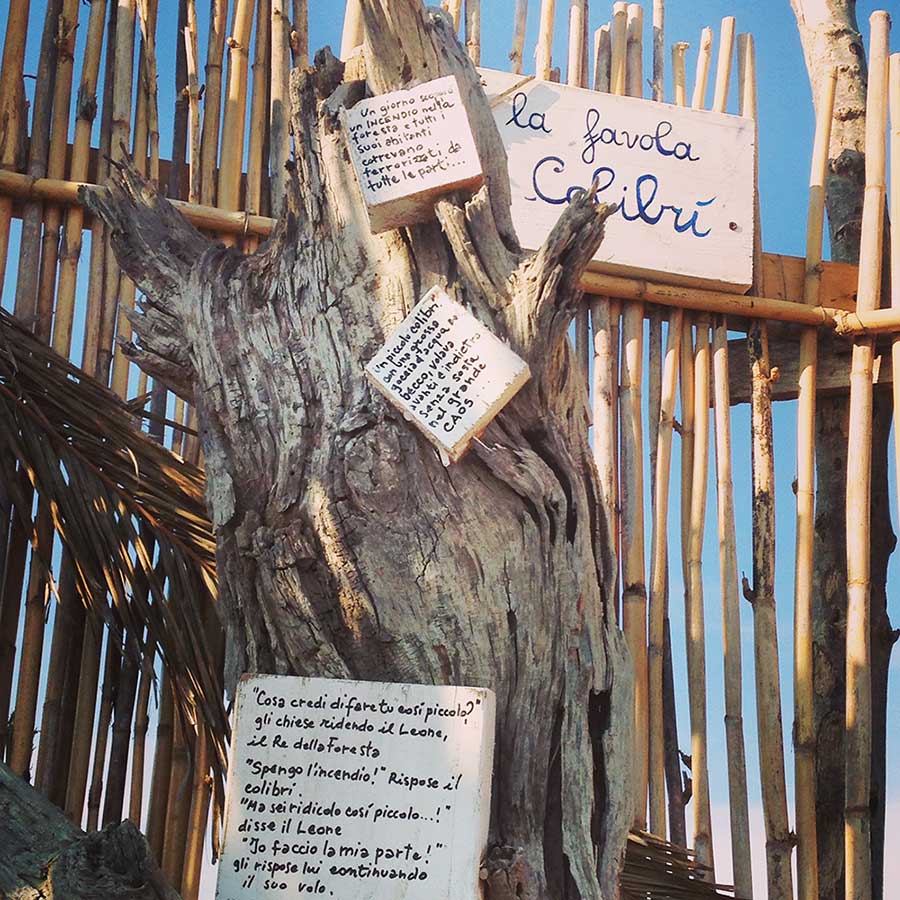 la favola
Colibrí
Un giorno scoppiò
un INCENDIO nella
foresta e tutti i
suoi abitanti
correvano
terrorizzati da
tutte le parti...
Un piccolo colibrí
con una grossa
goccia d'acqua nel
becco volava
avanti e indietro
senza sosta
nel grande
CAOS
"Cosa credi di fare tu cosí piccolo?"
gli chiese ridendo il Leone,
il Re della Foresta
"Spengo l'incendio!" Rispose il
colibrí.
"Ma sei ridicolo cosí piccolo...!"
disse il Leone
"Io faccio la mia parte!"
gli rispose lui continuando
il suo volo.